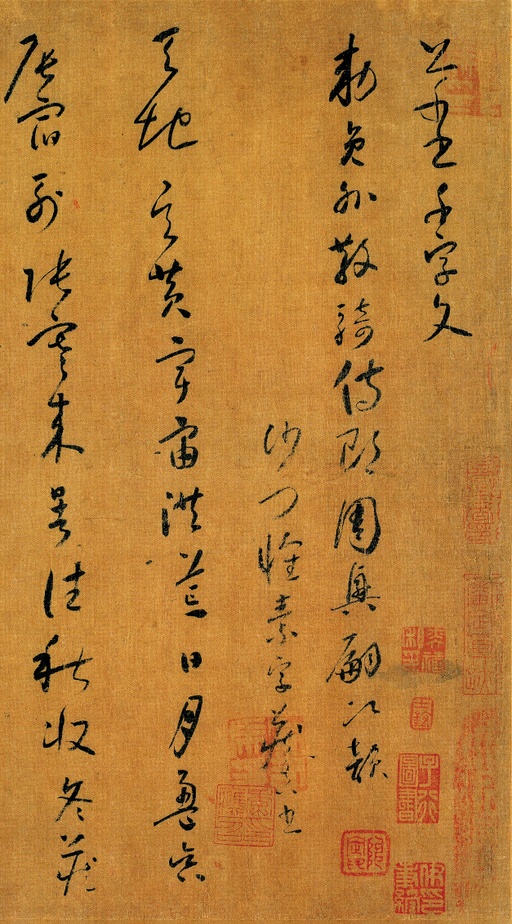 草書千字文
勑員外散騎侍郎周興嗣次韻
沙門懷素字藏真書
天地玄黃宇宙洪荒日月盈昃
辰宿列張寒來暑往秋收冬藏